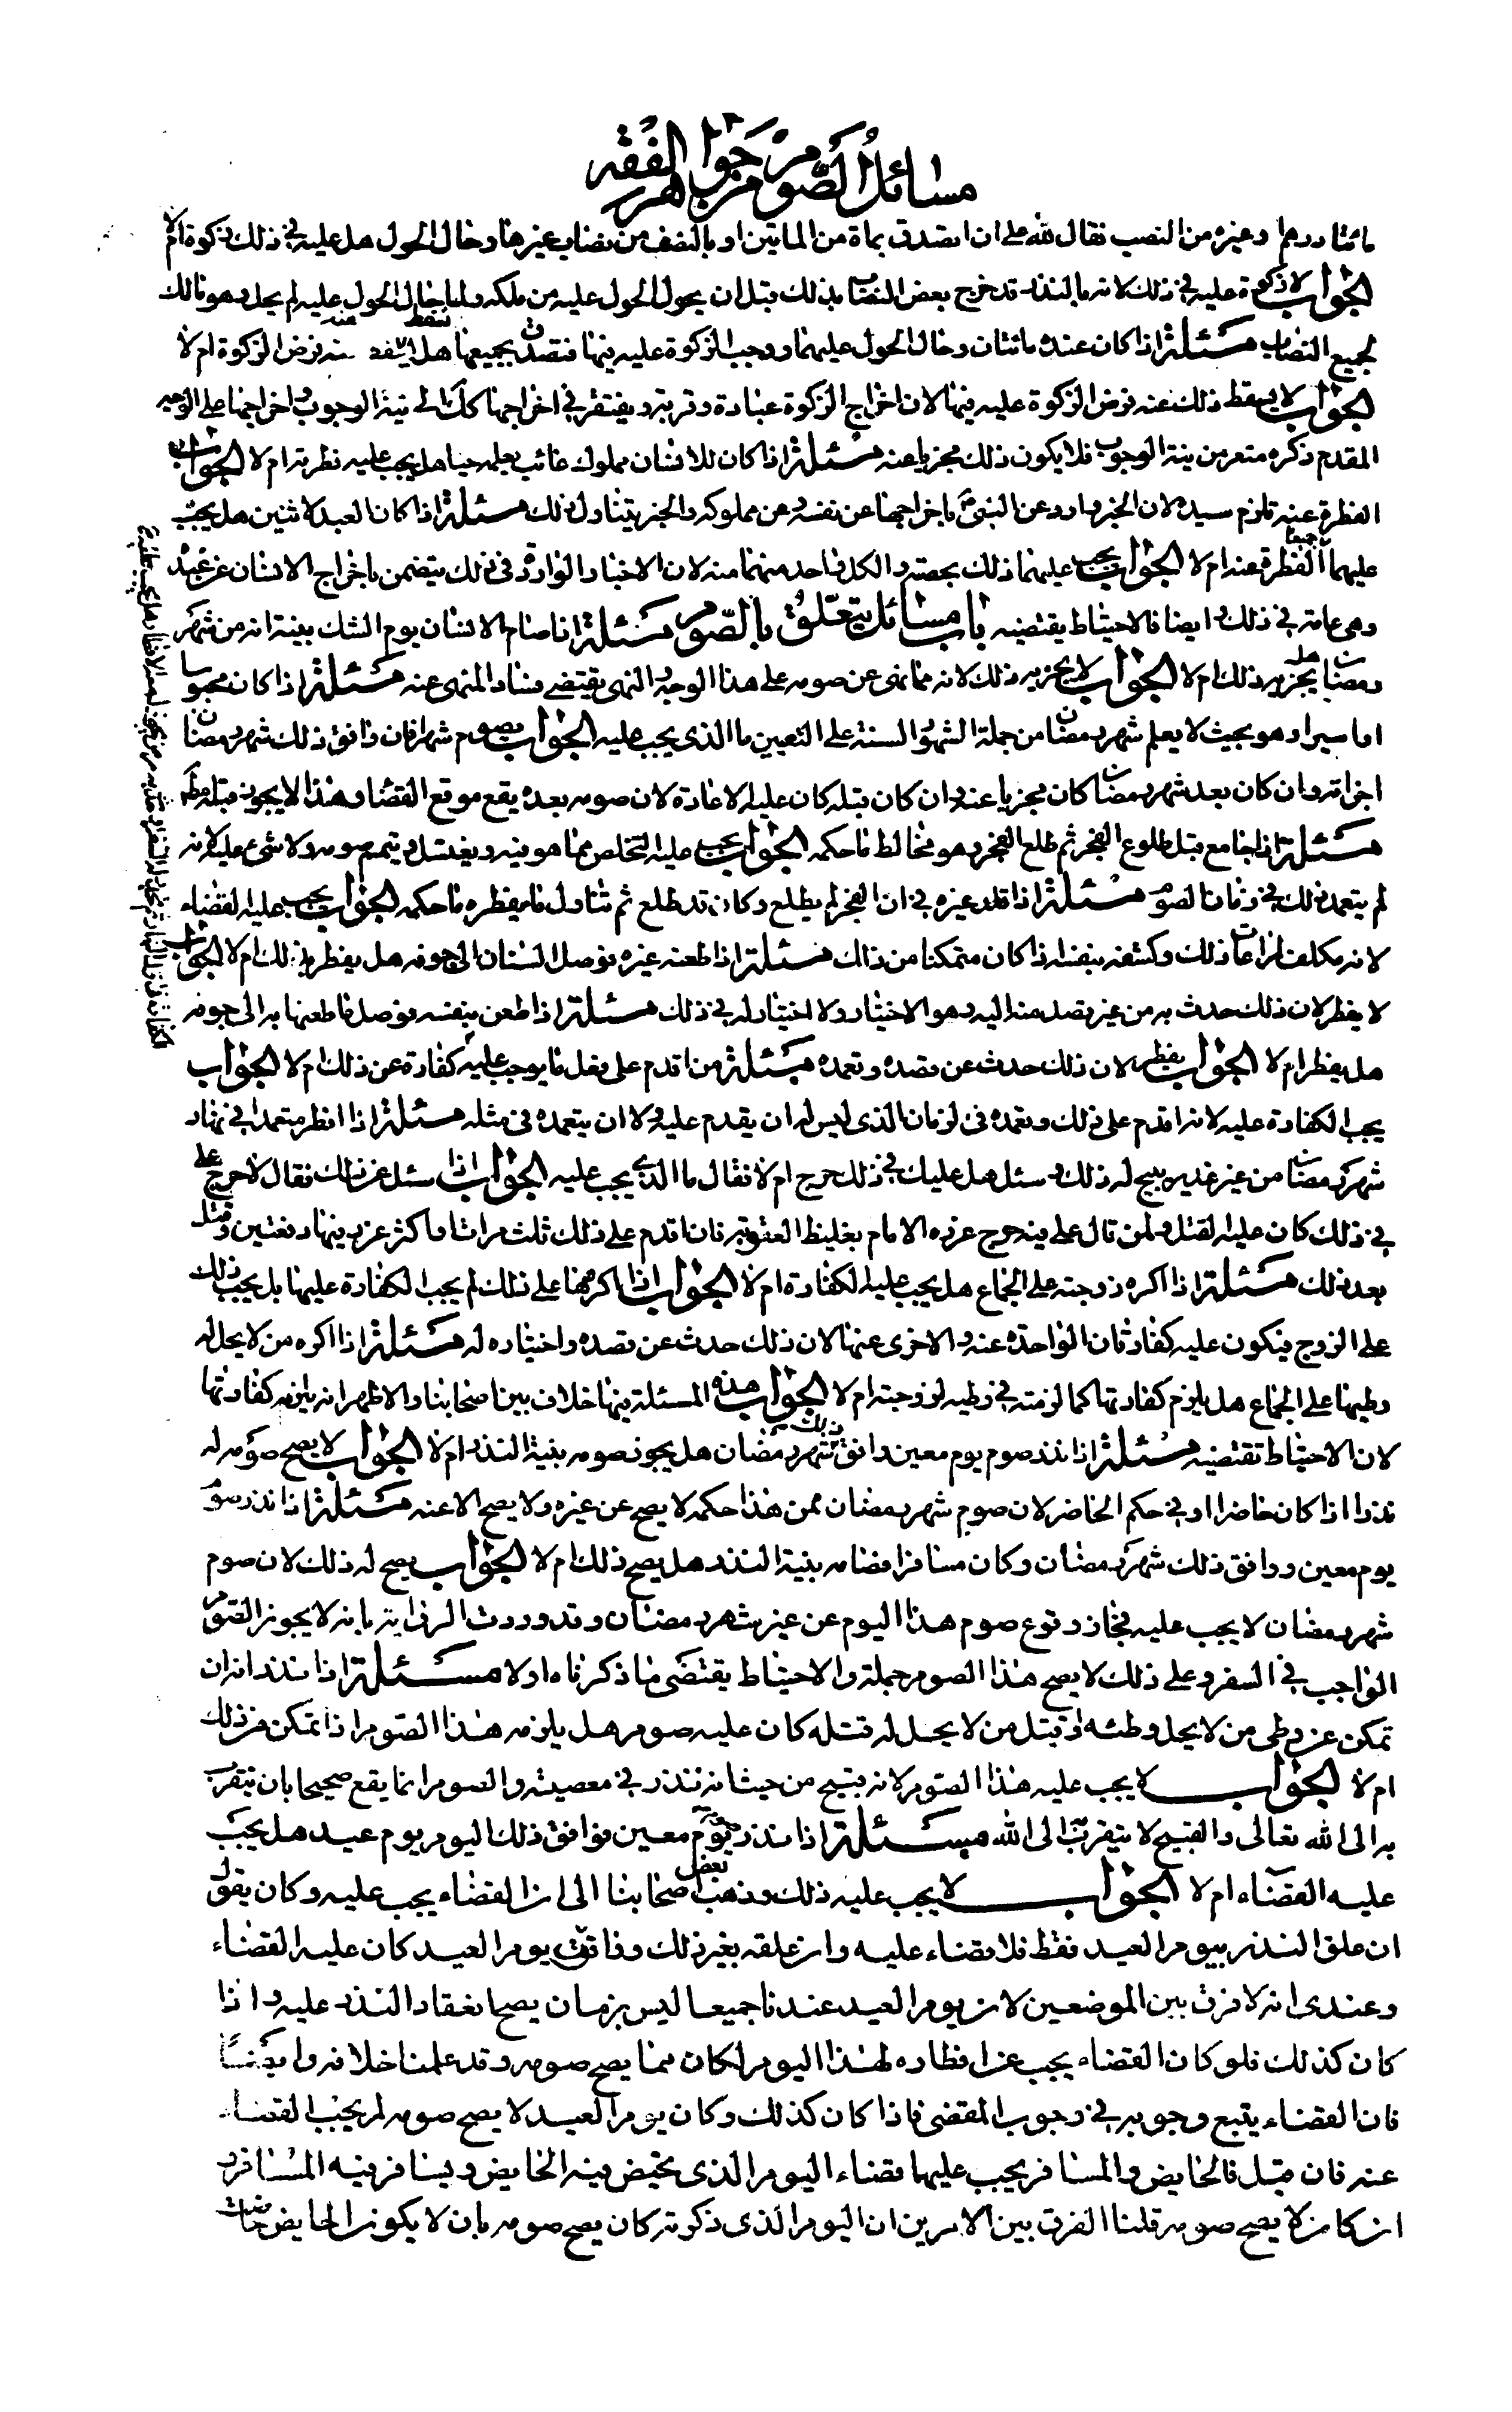 مسائل الصوم من جواهر الفقه
مائتا درهم وغيره من النصب فقال لله على ان اتصدق بماة من الماتين او بالنصف من نصاب غيرها وحال الحول هل عليه في ذلك زكوة ام لا
الجواب لا زكوة عليه في ذلك لانه بالنذر قد خرج بعض النصاب بذلك قبل ان يحول الحول عليه من ملكه ولما حال الحول عليه لم يحل وهو مالك
لجميع النصاب مسئلة اذا كان عنده مائتان وحال الحول عليهما ووجب الزكوة عليه فيها فتصدق بجميعها هل يسقط عنه فرض الزكوة ام لا
الجواب لا يسقط ذلك عنه فرض الزكوة عليه فيها لان اخراج الزكوة عبادة وقربة ويفتقر في اخراجها كك الى نية الوجوب واخراجها على الوجه
المقدم ذكره متعر من نية الوجوب فلا يكون ذلك مجزيا عنه مسئلة اذا كان للانسان مملوك غائب يعلمه حيا هل يجب عليه فطرته ام لا الجواب
الفطرة عنه تلزم سيده لان الخبر وارد عن النبي ص باخراجها عن نفسه وعن مملوكه والخبر يتناول ذلك مسئلة اذا كان العبد لاثنين هل يجب
عليهما جميعا الفطرة عنه ام لا الجواب يجب عليهما ذلك بحصته والكل واحد منهما منه لان الاخبار الواردة في ذلك يتضمن باخراج الانسان عن عبده
وهي عامة في ذلك وايضا فالاحتياط يقتضيه باب مسائل يتعلق بالصوم مسئلة اذا صام الانسان يوم الشك بنية انه من شهر
رمضان هل يجزيه ذلك ام لا الجواب لا يجزيه ذلك لانه مما نهى عن صومه على هذا الوجه والنهى يقتضى فساد المنهى عنه مسئلة اذا كان محبوسا
او اسيرا وهو بحيث لا يعلم شهر رمضان من جملة الشهور السنة على التعيين ما الذى يجب عليه الجواب يصوم شهرا فان وافق ذلك شهر رمضان
اجزاته وان كان بعد شهر رمضان كان مجزيا عنه وان كان قبله كان عليه الاعادة لان صومه بعده يقع موقع القضاء وهذا لا يجوز قبله
مسئلة اذا جامع قبل طلوع الفجر ثم طلع الفجر وهو مخالط ما حكمه الجواب يجب عليه التخلص مما هو فيه ويغتسل ويتمم صومه ولا شىء عليه لانه
لم يتعمد ذلك في زمان الصوم مسئلة اذا قلد غيره في ان الفجر لم يطلع وكان قد طلع ثم تناول ما يفطره ما حكمه الجواب يجب عليه القضاء
لانه مكلف لمراعات ذلك وكشفه بنفسه اذا كان متمكنا من ذلك مسئلة اذا طعنه غيره فوصل السنان الى جوفه هل يفطر بذلك ام لا الجواب
لا يفطر لان ذلك حدث به من غير قصد منه اليه وهو الاختيار ولا اختيار له في ذلك مسئلة اذا طعن بنفسه فوصل ما طعنها به الى جوفه
هل يفطر ام لا الجواب يفطر لان ذلك حدث عن قصده وتعمده مسئلة من اقدم على فعل ما يوجب عليه كفارة عن ذلك ام لا الجواب
يجب الكفارة عليه لانه اقدم على ذلك وتعمده في الزمان الذى ليس له ان يقدم عليه ولا ان يتعمده في مثله مسئلة اذا افطر متعمدا في نهار
شهر رمضان من غير عذر يبيح له ذلك وسئل هل عليك في ذلك حرج ام لا فقال ما الذى يجب عليه الجواب اذا سئل عن ذلك فقال لا حرج على
في ذلك كان عليه القتل ولمن قال على فيه حرج عزره الامام بغليظ العقوبة فان اقدم على ذلك ثلث مرات او اكثر عزر فيها دفعتين وقتل
بعد ذلك مسئلة اذا اكره زوجته على الجماع هل يجب عليه الكفارة ام لا الجواب اذا اكرهها على ذلك لم يجب الكفارة عليها بل يجب ذلك
على الزوج فيكون عليه كفارتان الواحدة عنه والاخرى عنها لان ذلك حدث عن قصده واختياره له مسئلة اذا اكره من لا يحل له
وطيها على الجماع هل يلزم كفارتها كما لزمته في وطيه لزوجته ام لا الجواب هذه المسئلة فيها خلاف بين اصحابنا والاظهر انه يلزمه كفارتها
لان الاحتياط تقتضيه مسئلة اذا نذر صوم يوم معين وافق ذلك شهر رمضان هل يجوز صومه بنية النذر ام لا الجواب لا يصح صومه له
نذرا اذا كان حاضرا او في حكم الحاضر لان صوم شهر رمضان ممن هذا حكمه لا يصح عن غيره ولا يصح الا عنه مسئلة اذا نذر صوم
يوم معين ووافق ذلك شهر رمضان وكان مسافرا فصامه بنية النذر هل يصح ذلك ام لا الجواب يصح له ذلك لان صوم
شهر رمضان لا يجب عليه فجاز وقوع صوم هذا اليوم عن غير شهر رمضان وقد وردت الرواية بانه لا يجوز الصوم
الواجب في السفر وعلى ذلك لا يصح هذا الصوم جملة والاحتياط يقتضى ما ذكرناه اولا مسئلة اذا نذر انه ان
تمكن من وطى من لا يحل وطئه او قتل من لا يحل له قتله كان عليه صوم هل يلزمه هذا الصوم اذا تمكن من ذلك
ام لا الجواب لا يجب عليه هذا الصوم لانه قبيح من حيث انه نذر في معصية والصوم انما يقع صحيحا بان يتقرب
به الى الله تعالى والقبيح لا يتقرب به الى الله مسئلة اذا نذر صوم يوم معين فوافق ذلك اليوم يوم عيد هل يجب
عليه القضاء ام لا الجواب لا يجب عليه ذلك وذهب بعض اصحابنا الى ان القضاء يجب عليه وكان يقول
ان علق النذر بيوم العيد فقط فلا قضاء عليه وان علقه بغير ذلك وفاق يوم العيد كان عليه القضاء
وعندى انه لا فرق بين الموضعين لان يوم العيد عندنا جميعا ليس بزمان يصح انعقاد النذر عليه واذا
كان كذلك فلو كان القضاء يجب عن افطاره لهذا اليوم لكان مما يصح صومه وقد علمنا خلافه وايضا
فان القضاء يتبع وجوبه في وجوب المقضى فاذا كان كذلك وكان يوم العيد لا يصح صومه لم يجب القضاء
عنه فان قيل فالحايض والمسافر يجب عليهما قضاء اليوم الذى تحيض فيه الحايض ويسافر فيه المسافر و
ان كان لا يصح صومه قلنا الفرق بين الامرين ان اليوم الذى ذكرته كان يصح صومه بان لا يكون الحايض حائضا